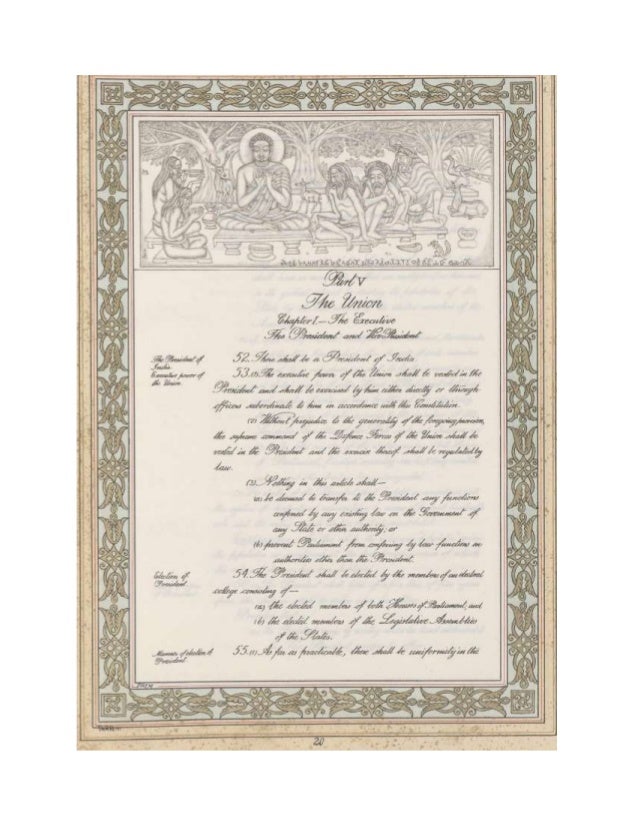 Part V
The Union
Chapter I.—The Executive
The President and Vice-President
The President of
India.
52. There shall be a President of India.
Executive power of
the Union.
53. (1) The executive power of the Union shall be vested in the
President and shall be exercised by him either directly or through
officers subordinate to him in accordance with this Constitution.
(2) Without prejudice to the generality of the foregoing provision,
the supreme command of the Defence Forces of the Union shall be
vested in the President and the exercise thereof shall be regulated by
law.
(3) Nothing in this article shall—
(a) be deemed to transfer to the President any functions
conferred by any existing law on the Government of
any State or other authority; or
(b) prevent Parliament from conferring by law functions on
authorities other than the President.
Election of
President.
54. The President shall be elected by the members of an electoral
college consisting of—
(a) the elected members of both Houses of Parliament; and
(b) the elected members of the Legislative Assemblies
of the States.
Manner of election of
President.
55. (1) As far as practicable, there shall be uniformity in the
20